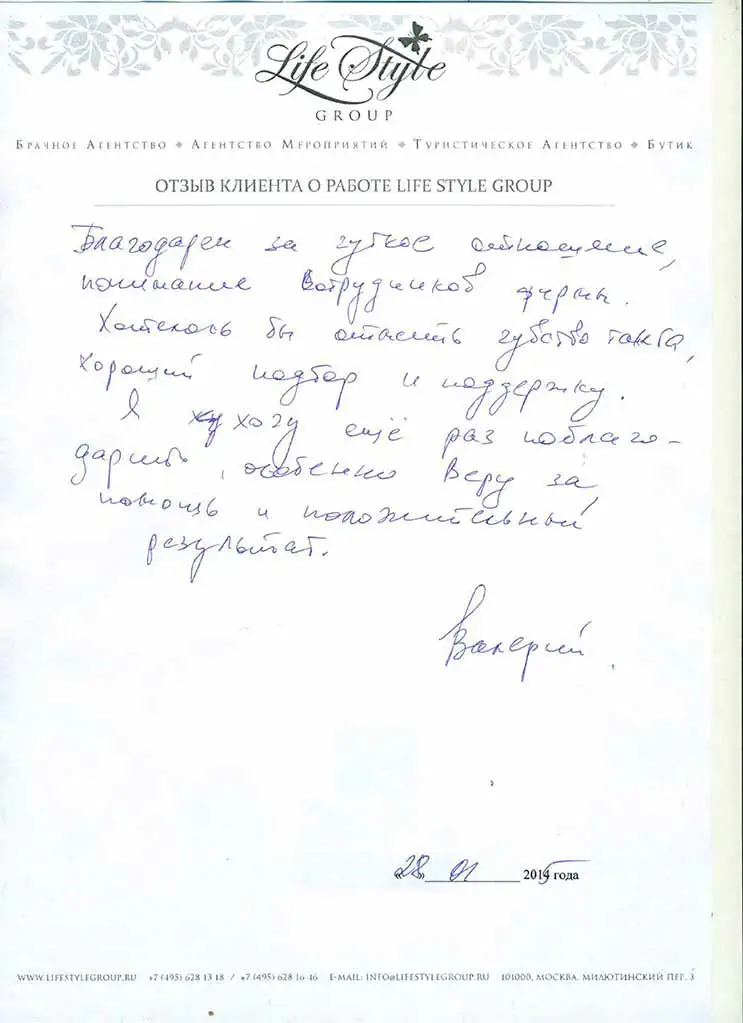 Life Style
GROUP
Брачное Агентство • Агентство Мероприятий • Туристическое Агентство • Бутик
ОТЗЫВ КЛИЕНТА О РАБОТЕ LIFE STYLE GROUP
Благодарен за чуткое отношение,
понимание сотрудников фирмы.
Хотелось бы отметить чувство такта,
хороший подбор и поддержку.
Я хочу ещё раз поблаго-
дарить, особенно Веру за
помощь и положительный
результат.
Валерий.
«28» 01 2015 года
WWW.LIFESTYLEGROUP.RU +7 (495) 628 13 18 / +7 (495) 628 16 46 E-MAIL: INFO@LIFESTYLEGROUP.RU 101000, МОСКВА, МИЛЮТИНСКИЙ ПЕР. 3